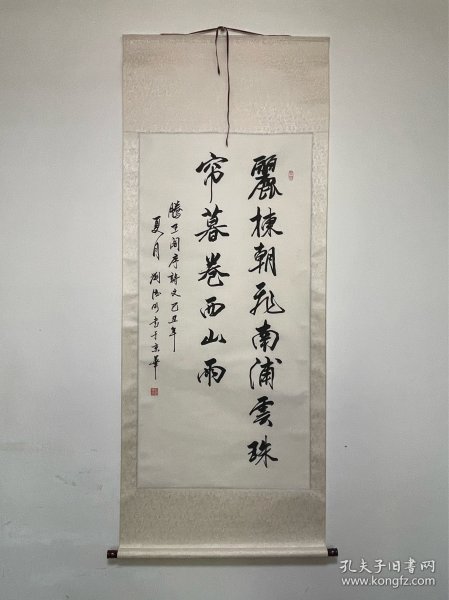 麗棟朝飛南浦雲珠
帘暮卷西山雨
騰王閣序詩文己丑年
夏月 于京華
孔夫子旧书网
www.kongfz.com